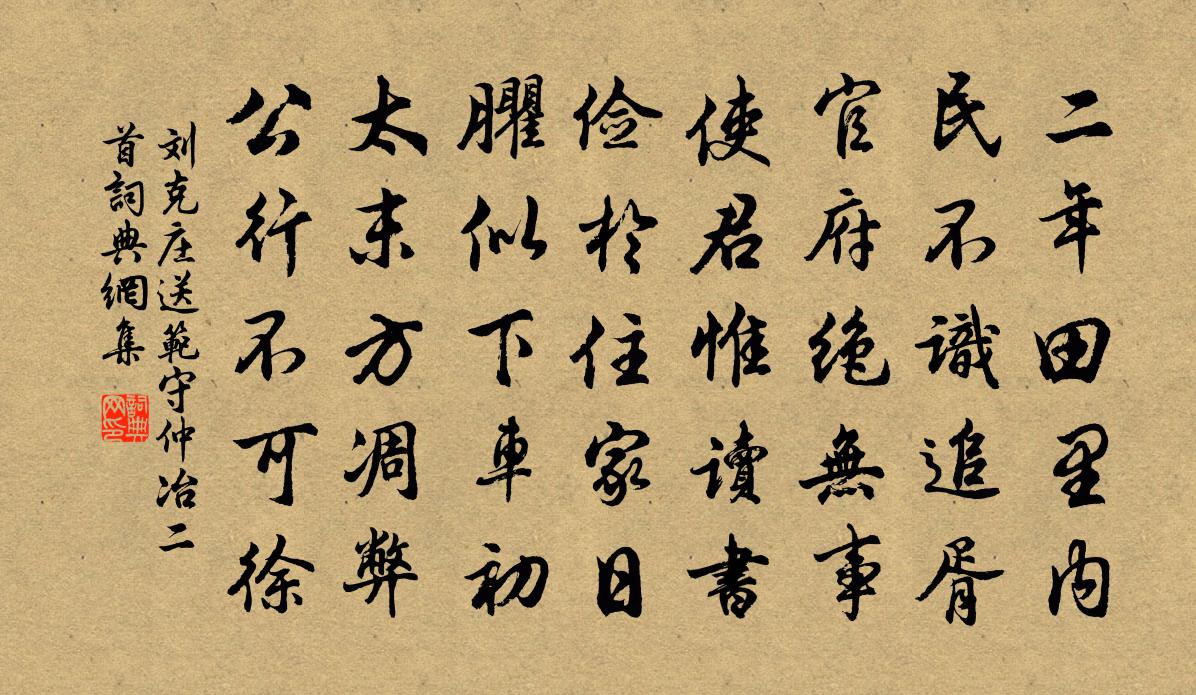 二年田里内
民不識追胥
官府绝無事
使君惟讀書
俭於住家日
臞似下車初
太末方凋弊
公行不可徐
刘克庄送範守仲冶二
首詞典網集
詞典
网印